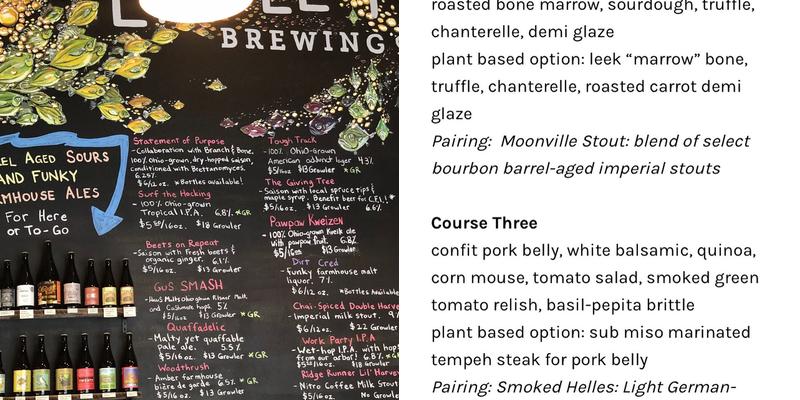 BREWING
EL AGED SOURS
AND FUNKY
RMHOUSE ALES
For Here
or To-Go
Statement of Purpose
-Collaboration with Branch & Bone.
100% Ohio-grown, dry-hopped saison,
conditioned with Brettanomyces.
6.25%
$6/12 oz. *Bottles available!
Surf the Hocking
- 100% Ohio-grown
Tropical I.P.A. 6.8% *GR
/16oz. $18 Growler
Beets on Repeat
-Saison with fresh beets &
organic ginger. 6.1%
$5/16oz. $13 Growler
GUS SMASH
5%
$5/16oz $13 Growler *GR
Quaffadelic
-Malty yet quaffable
pale ale. 5.5%
$5/16oz $13 Growler *GR
Woodthrush
-Amber farmhouse
bière de garde 6.5% *GR
$5/16 oz. $13 Growler
Tough Track
-100% Ohio-Grown
American adjunct lager 4.3%
$5/16oz $13 Growler *GR
The Giving Tree
-Saison with local spruce tips &
maple syrup. Benefit beer for C.E.L.!
$5/16oz. $13 Growler 6.6%
Pawpaw Kweizen
- 100% Ohio-Grown Kveik ale
with pawpaw fruit. 6.8%
$5/16oz $13 Growler
Dirt Cred
-funky farmhouse malt
liquor. 7%
$6/12 oz. *Bottles Available
Chai-Spiced Double Harve
-Imperial milk stout. 9%
$6/12oz. $22 Growler
Work Party I.P.A
-Wet-hop I.P.A. with hops
from our arbor! 6.8% *GR
$13 Growler
Ridge Runner Lil' Harve
- Nitro Coffee Milk Stout
$5/16 oz. No Growle
roasted bone marrow, sourdough, truffle,
chanterelle, demi glaze
plant based option: leek “marrow” bone,
truffle, chanterelle, roasted carrot demi
glaze
Pairing: Moonville Stout: blend of select
bourbon barrel-aged imperial stouts
Course Three
confit pork belly, white balsamic, quinoa,
corn mouse, tomato salad, smoked green
tomato relish, basil-pepita brittle
plant based option: sub miso marinated
tempeh steak for pork belly
Pairing: Smoked Helles: Light German-